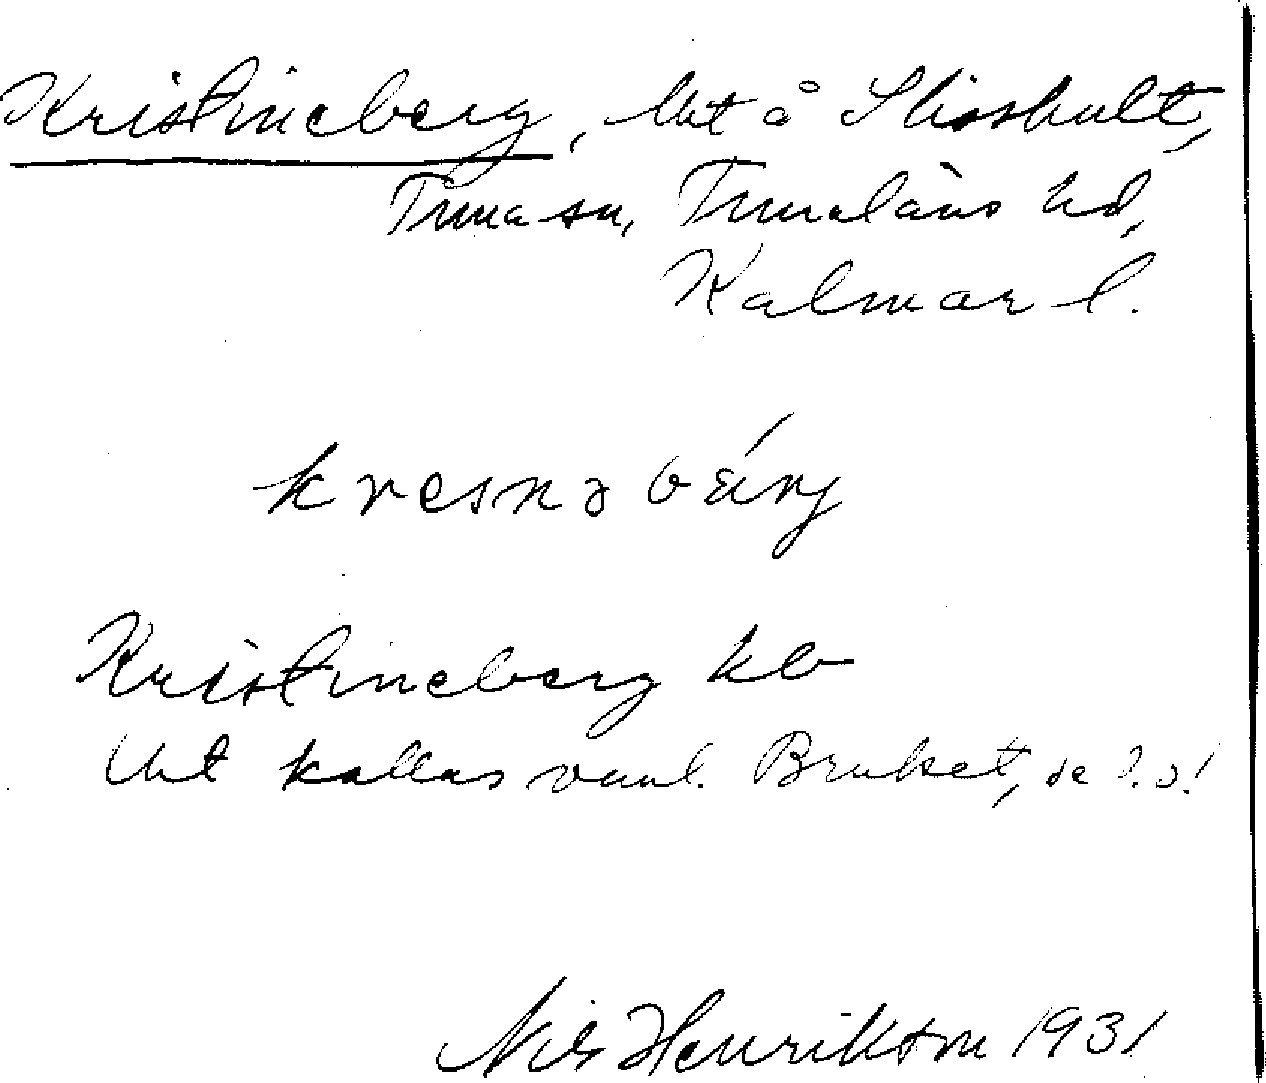 Kristineberg, lht å Slisshult,
Tuna sn, Tunaläns hd,
Kalmar l.
kresnəbærj
Kristineberg kb
Lht kallas vanl. Bruket, se d.o!
Nils Henrikson 1931